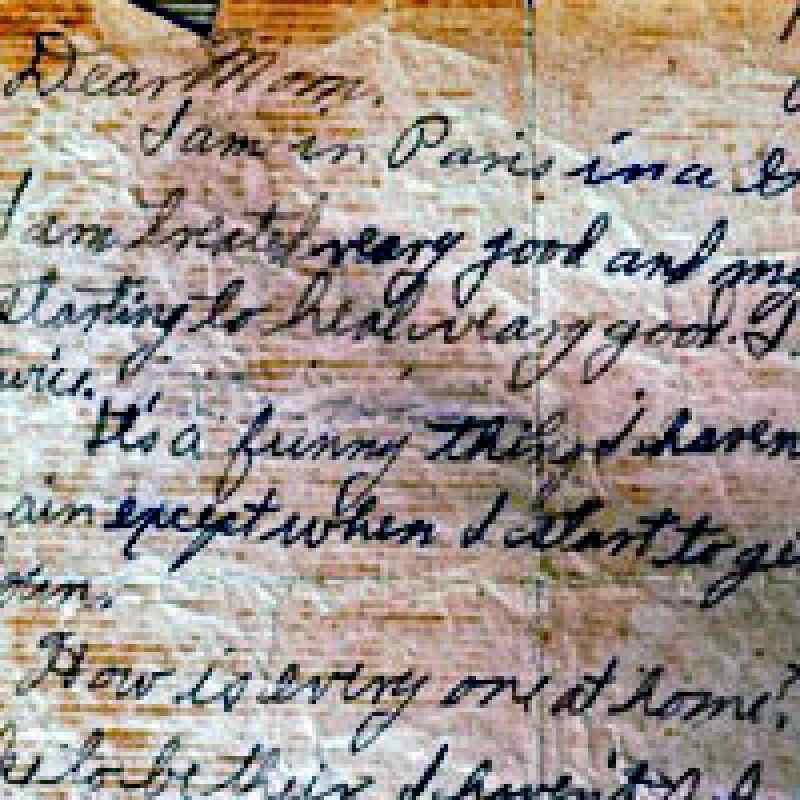 Dear Mom.
I am in Paris in a
I am treated veary good and my
starting to heal veary good. I
It's a funny thing I haven
ain except when I start to gi
How is every one at home?
to be their I haven't